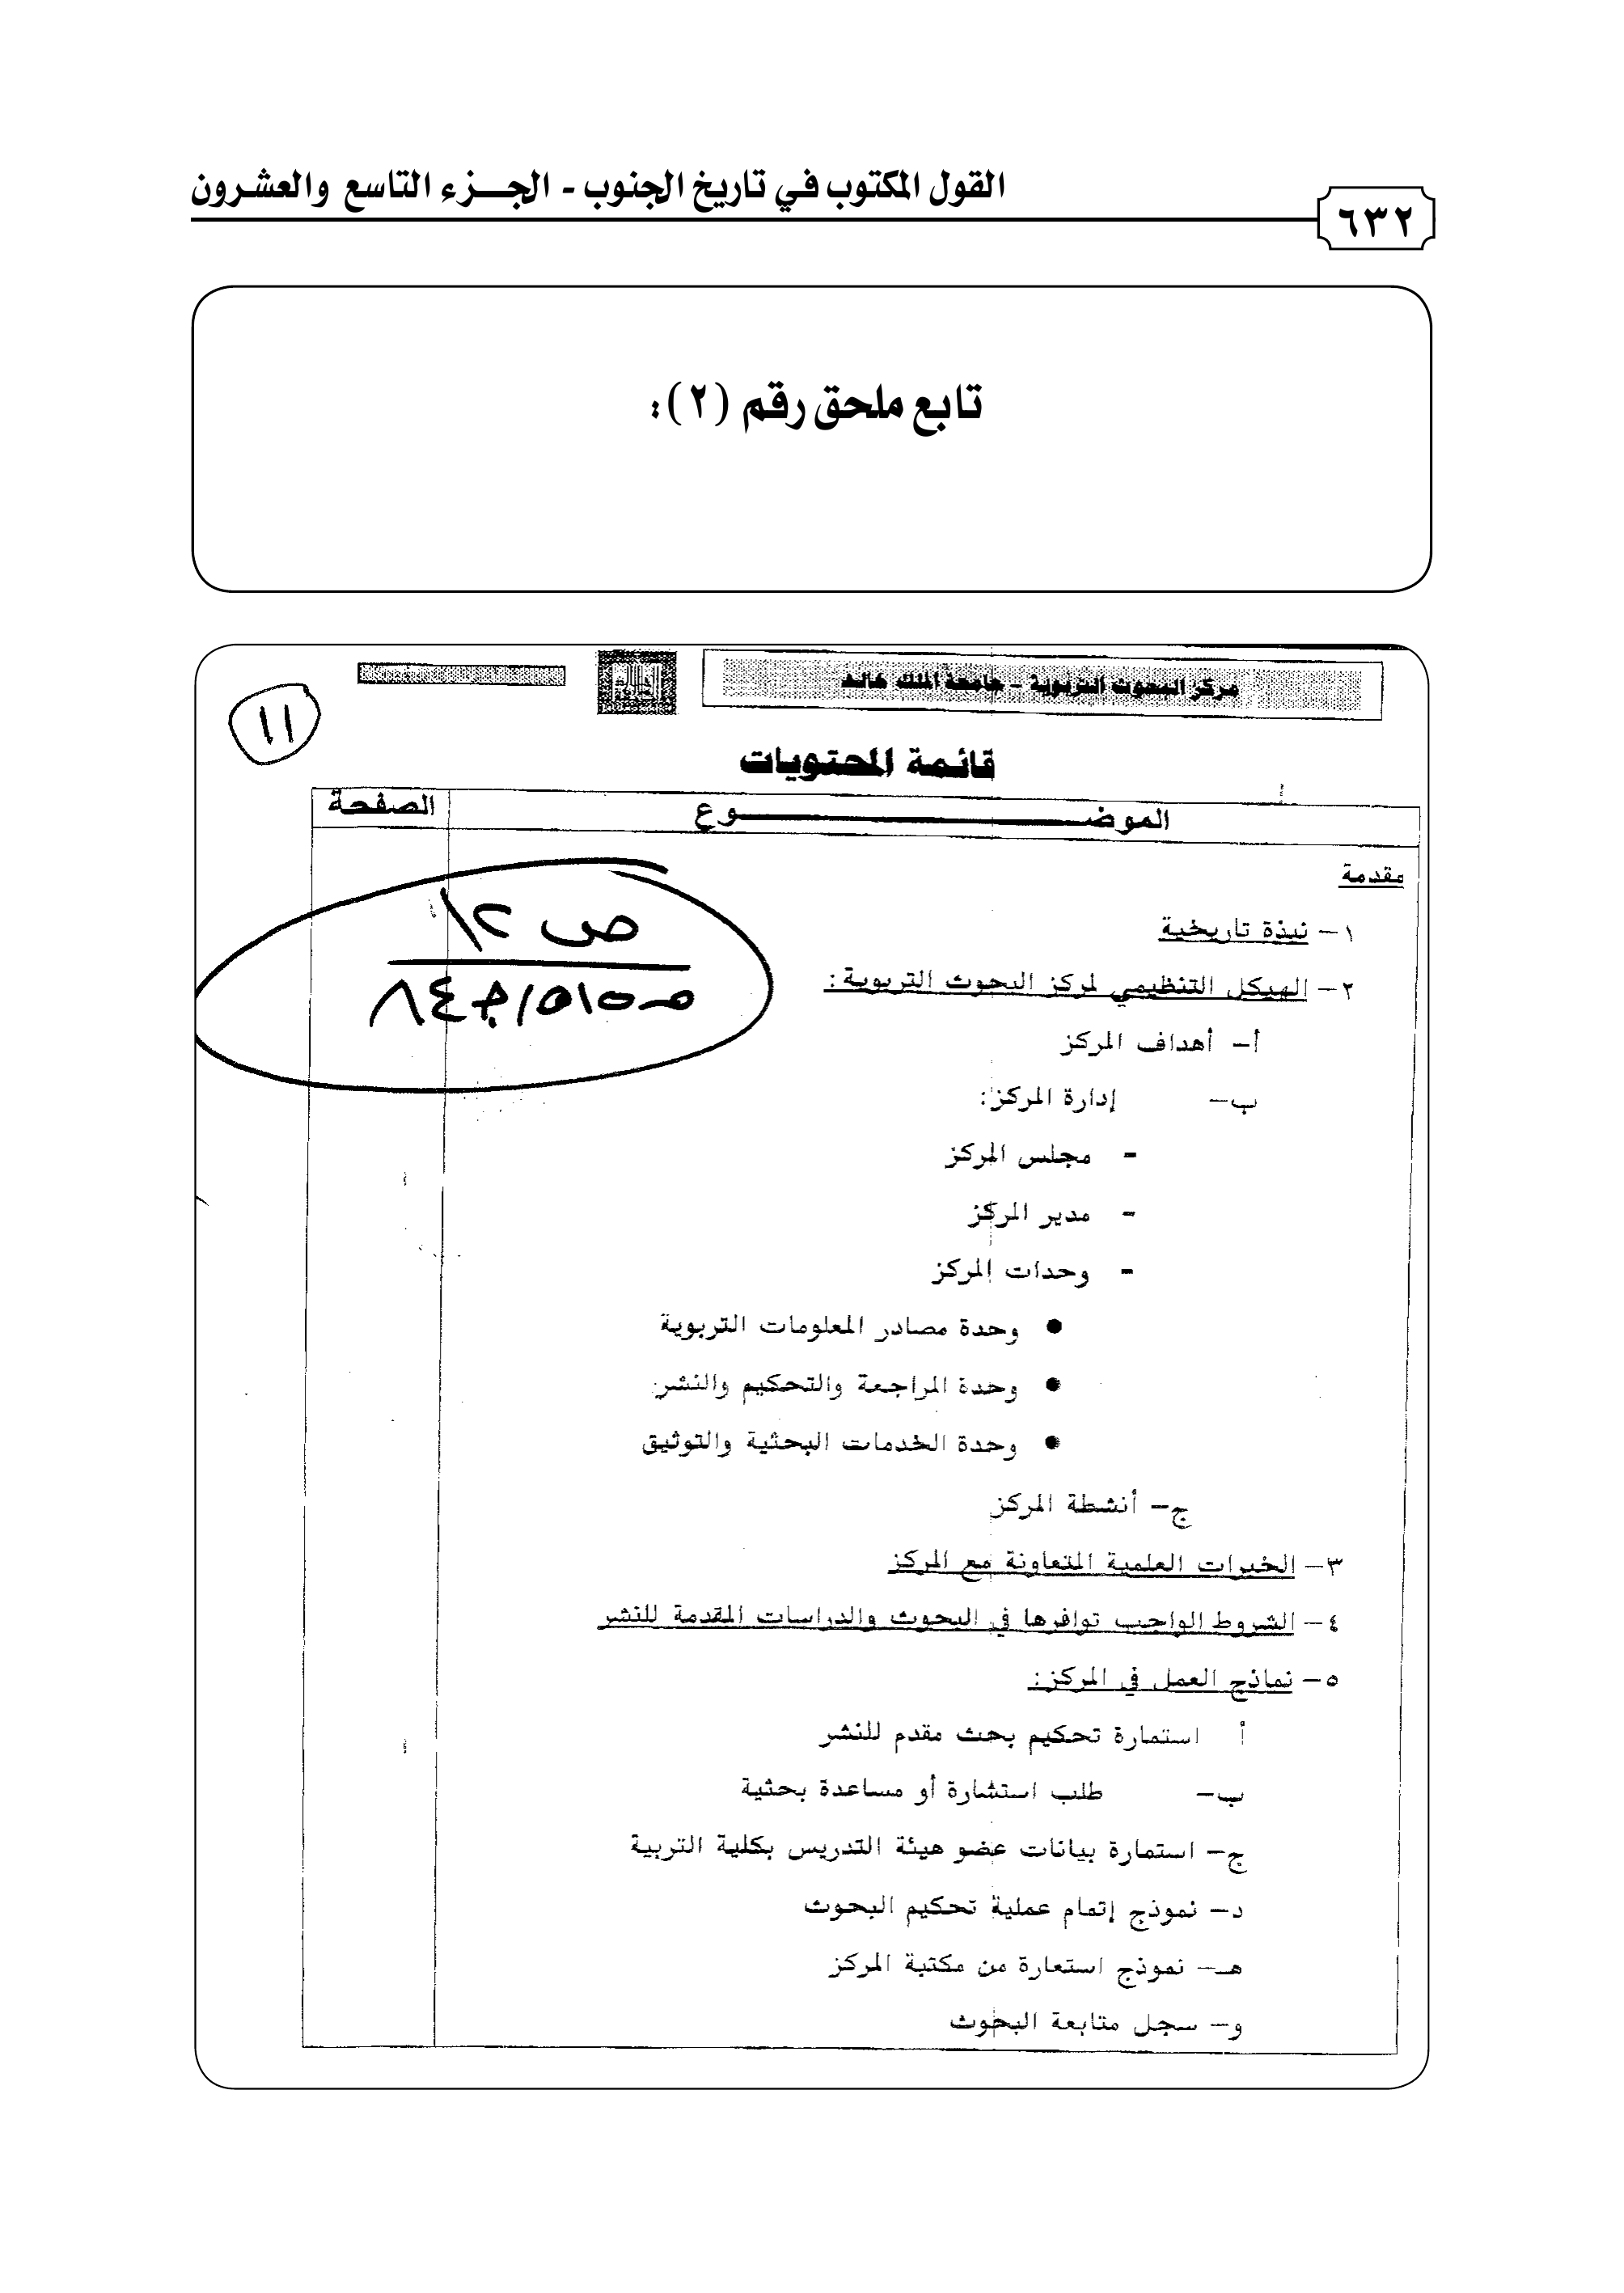 القول المكتوب في تاريخ الجنوب - الجـــزء التاسع والعشـرون
٦٣٢
تابع ملحق رقم (٢):
مركز البحوث التربوية - جامعة الملك خالد
١١
قائمة المحتويات
الموضـــــــــــــــوع
الصفحة
مقدمة
١- نبذة تاريخية
٢- الهيكل التنظيمي لمركز البحوث التربوية:
أ- أهداف المركز
ب- إدارة المركز:
- مجلس المركز
- مدير المركز
- وحدات المركز
● وحدة مصادر المعلومات التربوية
● وحدة المراجعة والتحكيم والنشر
● وحدة الخدمات البحثية والتوثيق
ج- أنشطة المركز
٣- الخبرات العلمية المتعاونة مع المركز
٤- الشروط الواجب توافرها في البحوث والدراسات المقدمة للنشر
٥- نماذج العمل في المركز:
أ استمارة تحكيم بحث مقدم للنشر
ب- طلب استشارة أو مساعدة بحثية
ج- استمارة بيانات عضو هيئة التدريس بكلية التربية
د- نموذج إتمام عملية تحكيم البحوث
هـ- نموذج استعارة من مكتبة المركز
و- سجل متابعة البحوث